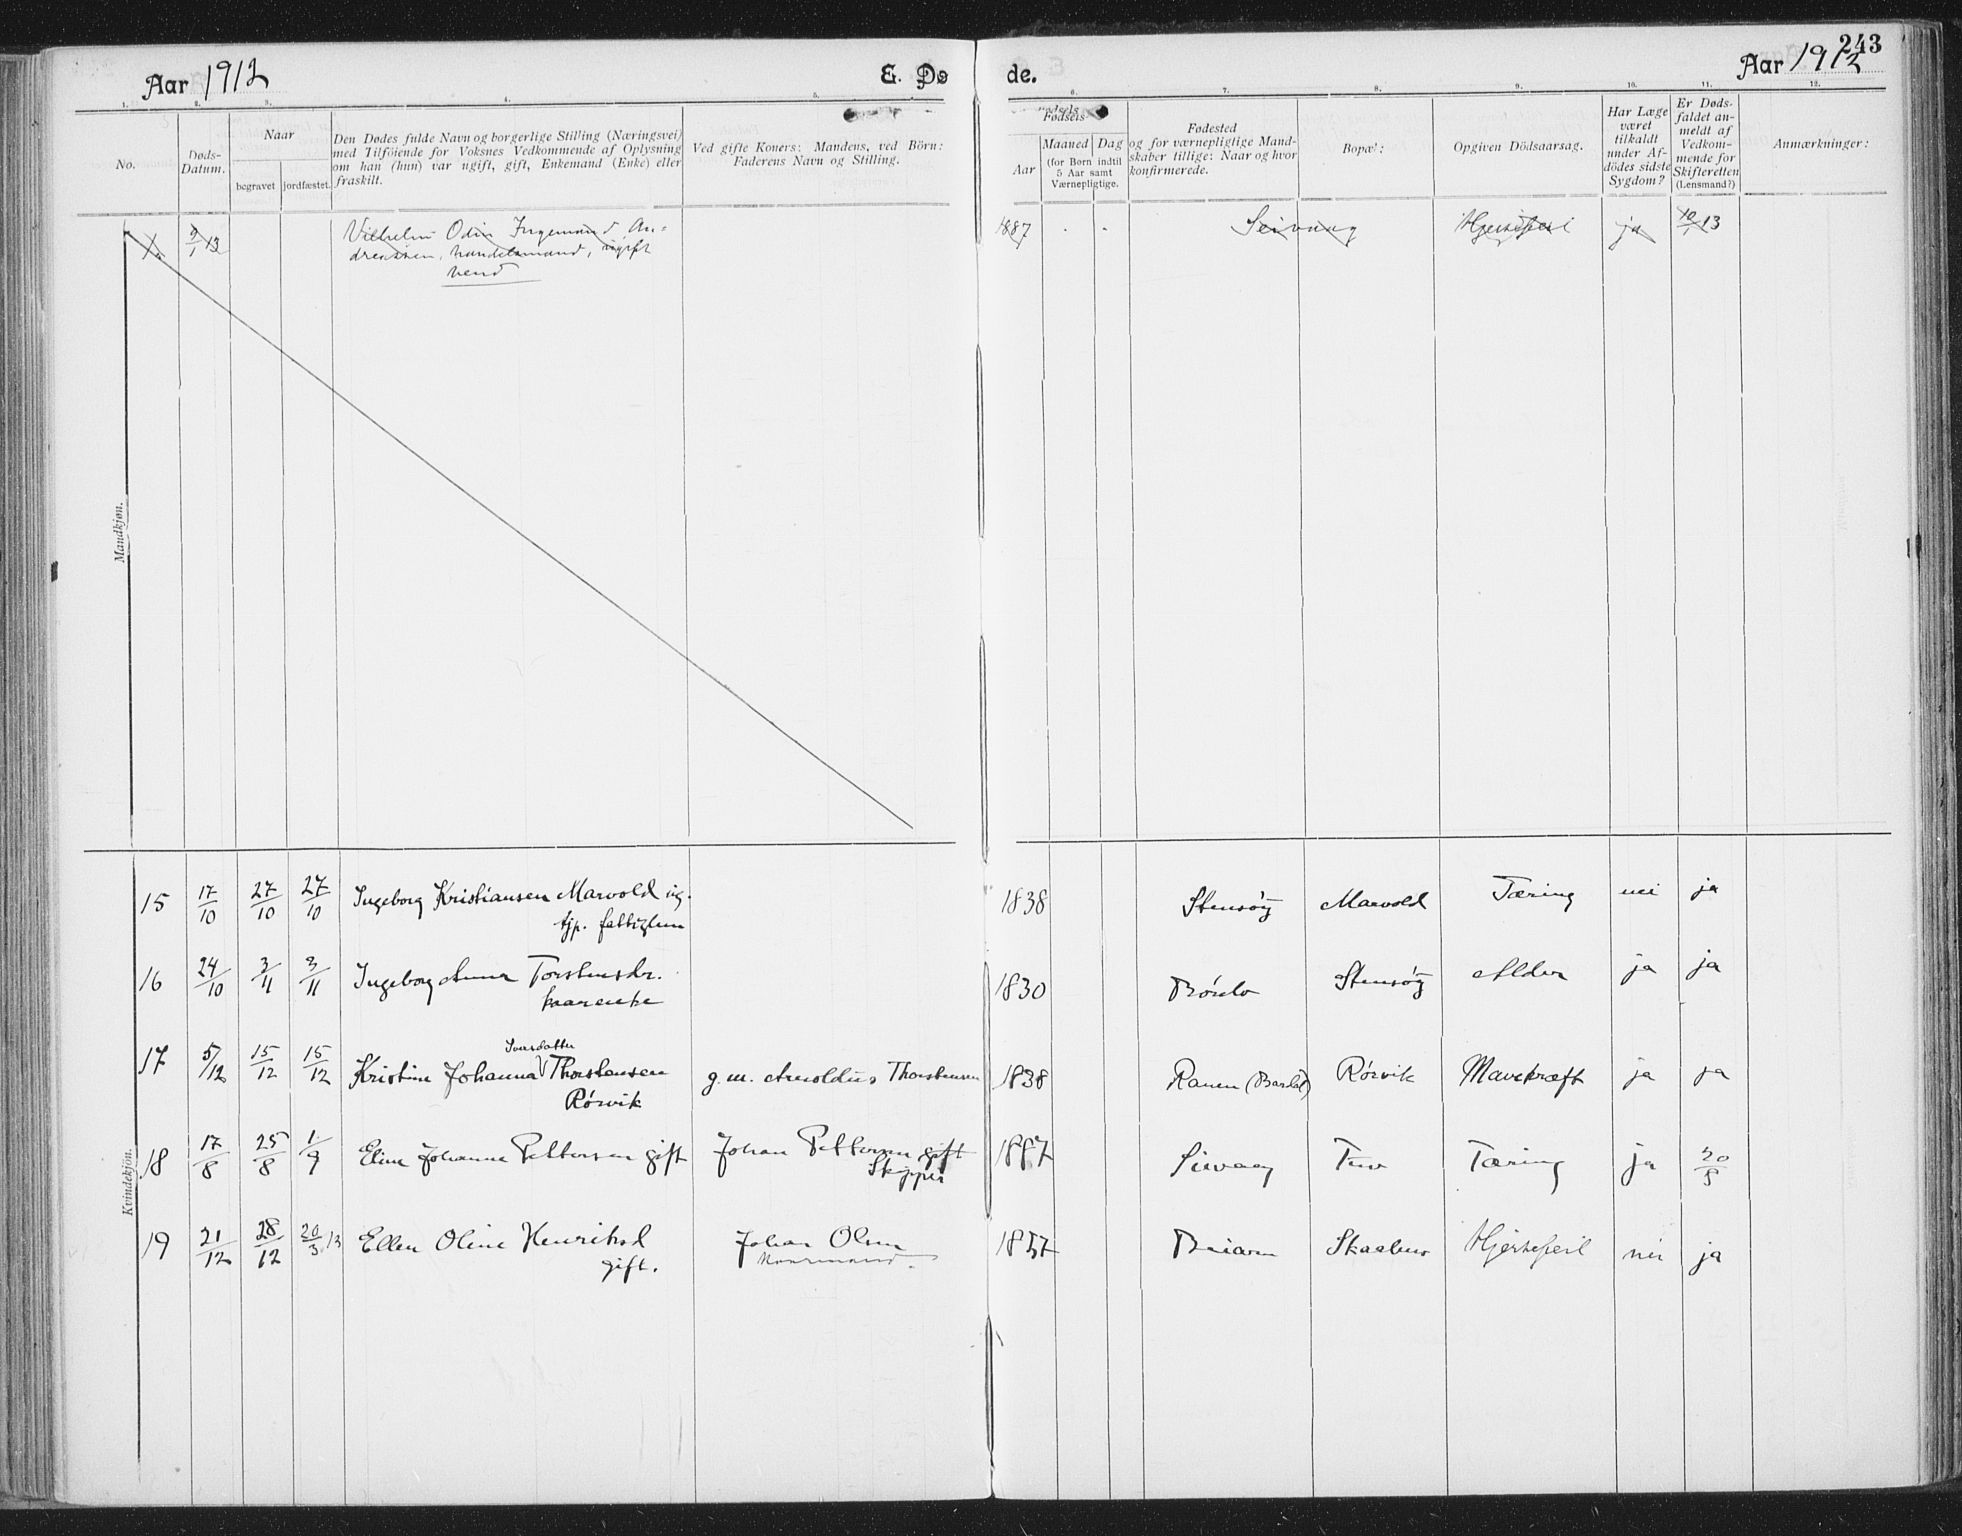 Aar 1912
E. Dø
de.
243
Aar 1912
1. 2. 3. 4. 5. 6. 7. 8. 9. 10. 11. 12.
No.
Døds-
Datum.
Naar
begravet
jordfæstet.
Den Dødes fulde Navn og borgerlige Stilling (Næringsvei)
med Tilföiende for Voksnes Vedkommende af Oplysning
om han (hun) var ugift, gift, Enkemand (Enke) eller
fraskilt.
Ved gifte Koners: Mandens, ved Börn:
Faderens Navn og Stilling.
Fødsels
Aar
Maaned
Dag
(for Børn indtil
5 Aar samt
Værnepligtige.
Fødested
og for værnepligtige Mand-
skaber tillige: Naar og hvor
konfirmerede.
Bopæl:
Opgiven Dödsaarsag.
Har Læge
været
tilkaldt
under Af-
dödes sidste
Sygdom?
Er Døds-
faldet an-
meldt af
Vedkom-
mende for
Skifteretten
(Lensmand?)
Anmærkninger:
Mandkjøn.
1. 9/1 13 Vilhelm Odin Ingemund An- 1887 Seivaag Hjertefeil ja 10/1 13
dreassen, handelsmand, ugift
Kvindekjøn.
15 17/10 27/10 27/10 Ingeborg Kristiansen Marvold ug. 1838 Stensöy Marvold Tæring nei ja
tjp. fattiglem
16 24/10 3/11 3/11 Ingeborg Anna Torstensdr. 1830 Stensöy Alder ja ja
kaarenke
Ivarsdatter
17 5/12 15/12 15/12 Kristine Johanna Thorstensen g. m. Arnoldus Thorstensen 1838 Ranen Rörvik Mavekræft ja ja
Rörvik
18 17/8 25/8 1/9 Eline Johanne Pettersen gift Johan Pettersen gift 1887 Tuv Tæring ja
Skipper
19 21/12 28/12 20/3 13 Ellen Oline Henriksd Johan Olsen 1857 Beiarn Hjertefeil nei ja
gift. Kaarmand.